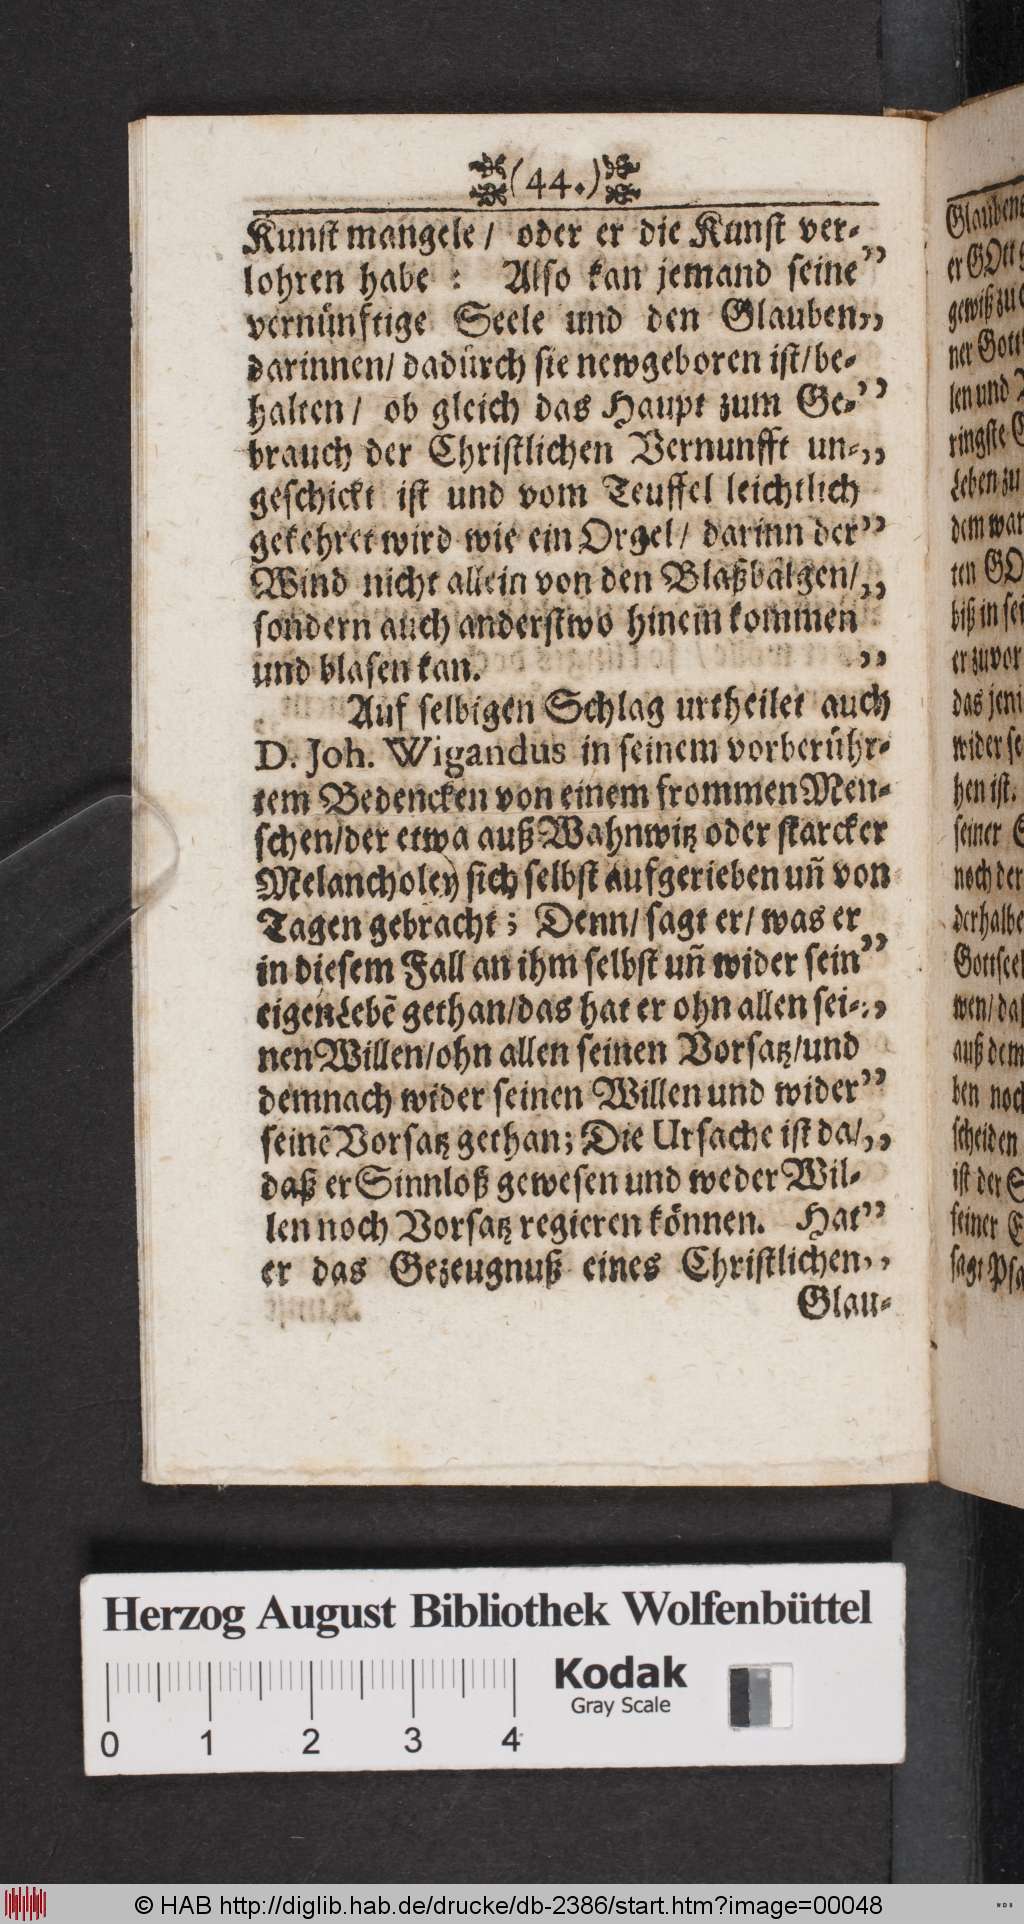 (44.)
Kunst mangele/ oder er die Kunst ver-
lohren habe: Also kan jemand seine ”
vernünfftige Seele und den Glauben ”
darinnen/ dadurch sie newgeboren ist/be-
halten/ ob gleich das Haupt zum Ge- ”
brauch der Christlichen Vernunfft un- ”
geschickt ist und vom Teuffel leichtlich
gekehret wird wie ein Orgel/ darinn der ”
Wind nicht allein von den Blaßbälgen/ ”
sondern auch anderstwo hinein kommen
und blasen kan. ”
Auf selbigen Schlag urtheilet auch
D. Joh. Wigandus in seinem vorberühr-
tem Bedencken von einem frommen Men-
schen/der etwa auß Wahnwitz oder starcker
Melancholey sich selbst aufgerieben uñ von
Tagen gebracht; Denn/ sagt er/ was er
in diesem Fall an ihm selbst uñ wider sein ”
eigen Lebẽ gethan/das hat er ohn allen sei- ”
nen Willen/ohn allen seinen Vorsatz/und
demnach wider seinen Willen und wider ”
seinẽ Vorsatz gethan; Die Ursache ist da/ ”
daß er Sinnloß gewesen und weder Wil-
len noch Vorsatz regieren können. Hat ”
er das Gezeugnuß eines Christlichen ”
Glau-
Glauben
er GOtt
gewiß zu
ner Gott
len und
ringste
Leben zu
dem war
ten GO
biß in sei
er zuvor
das jeni
wider se
hen ist.
seiner
noch der
derhalbe
Gottseel
wen/ daß
auß dem
ben noch
scheiden
ist der S
seiner E
sagt Psa
Herzog August Bibliothek Wolfenbüttel
Kodak
Gray Scale
0 1 2 3 4
© HAB http://diglib.hab.de/drucke/db-2386/start.htm?image=00048